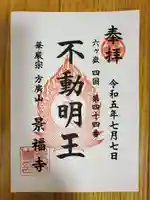 奉拝
令和五年七月七日
六ヶ嶽 四国 第四十四番
不動明王
華厳宗 方廣山 景福寺